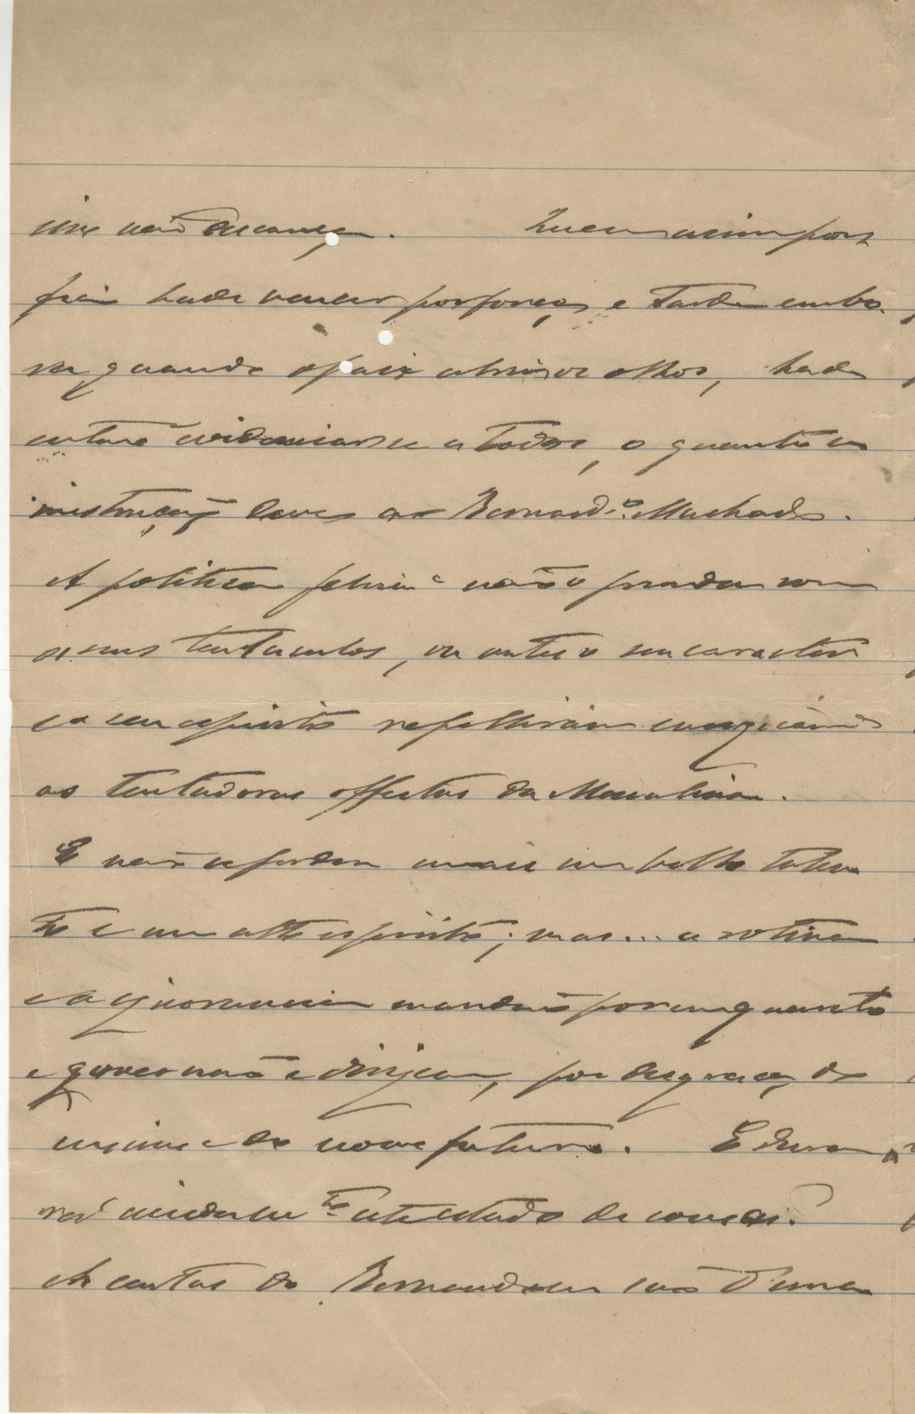 não descança. Quem assim por
fia hade vencer por força, e tarde embo
ra quando o paiz abrir os olhos, hade
então evidenciar-se a todos, o quanto a
instrucção deve ao Bernardº Machado.
A politica feliz.e não o prendeu com
os seus tentaculos, ou antes o seu caracter
e o seu espirito repelliram
as tentadoras offertas da
E não se perdeu mais um bello talen
to e um alto espirito; mas... a rotina
e a ignorancia mandão por emquanto
e governão e dirigem, por desgraça, do
ensino e do nosso futuro. E durará
ainda mto este estado de cousas?
As cartas do Bernardo são d'uma